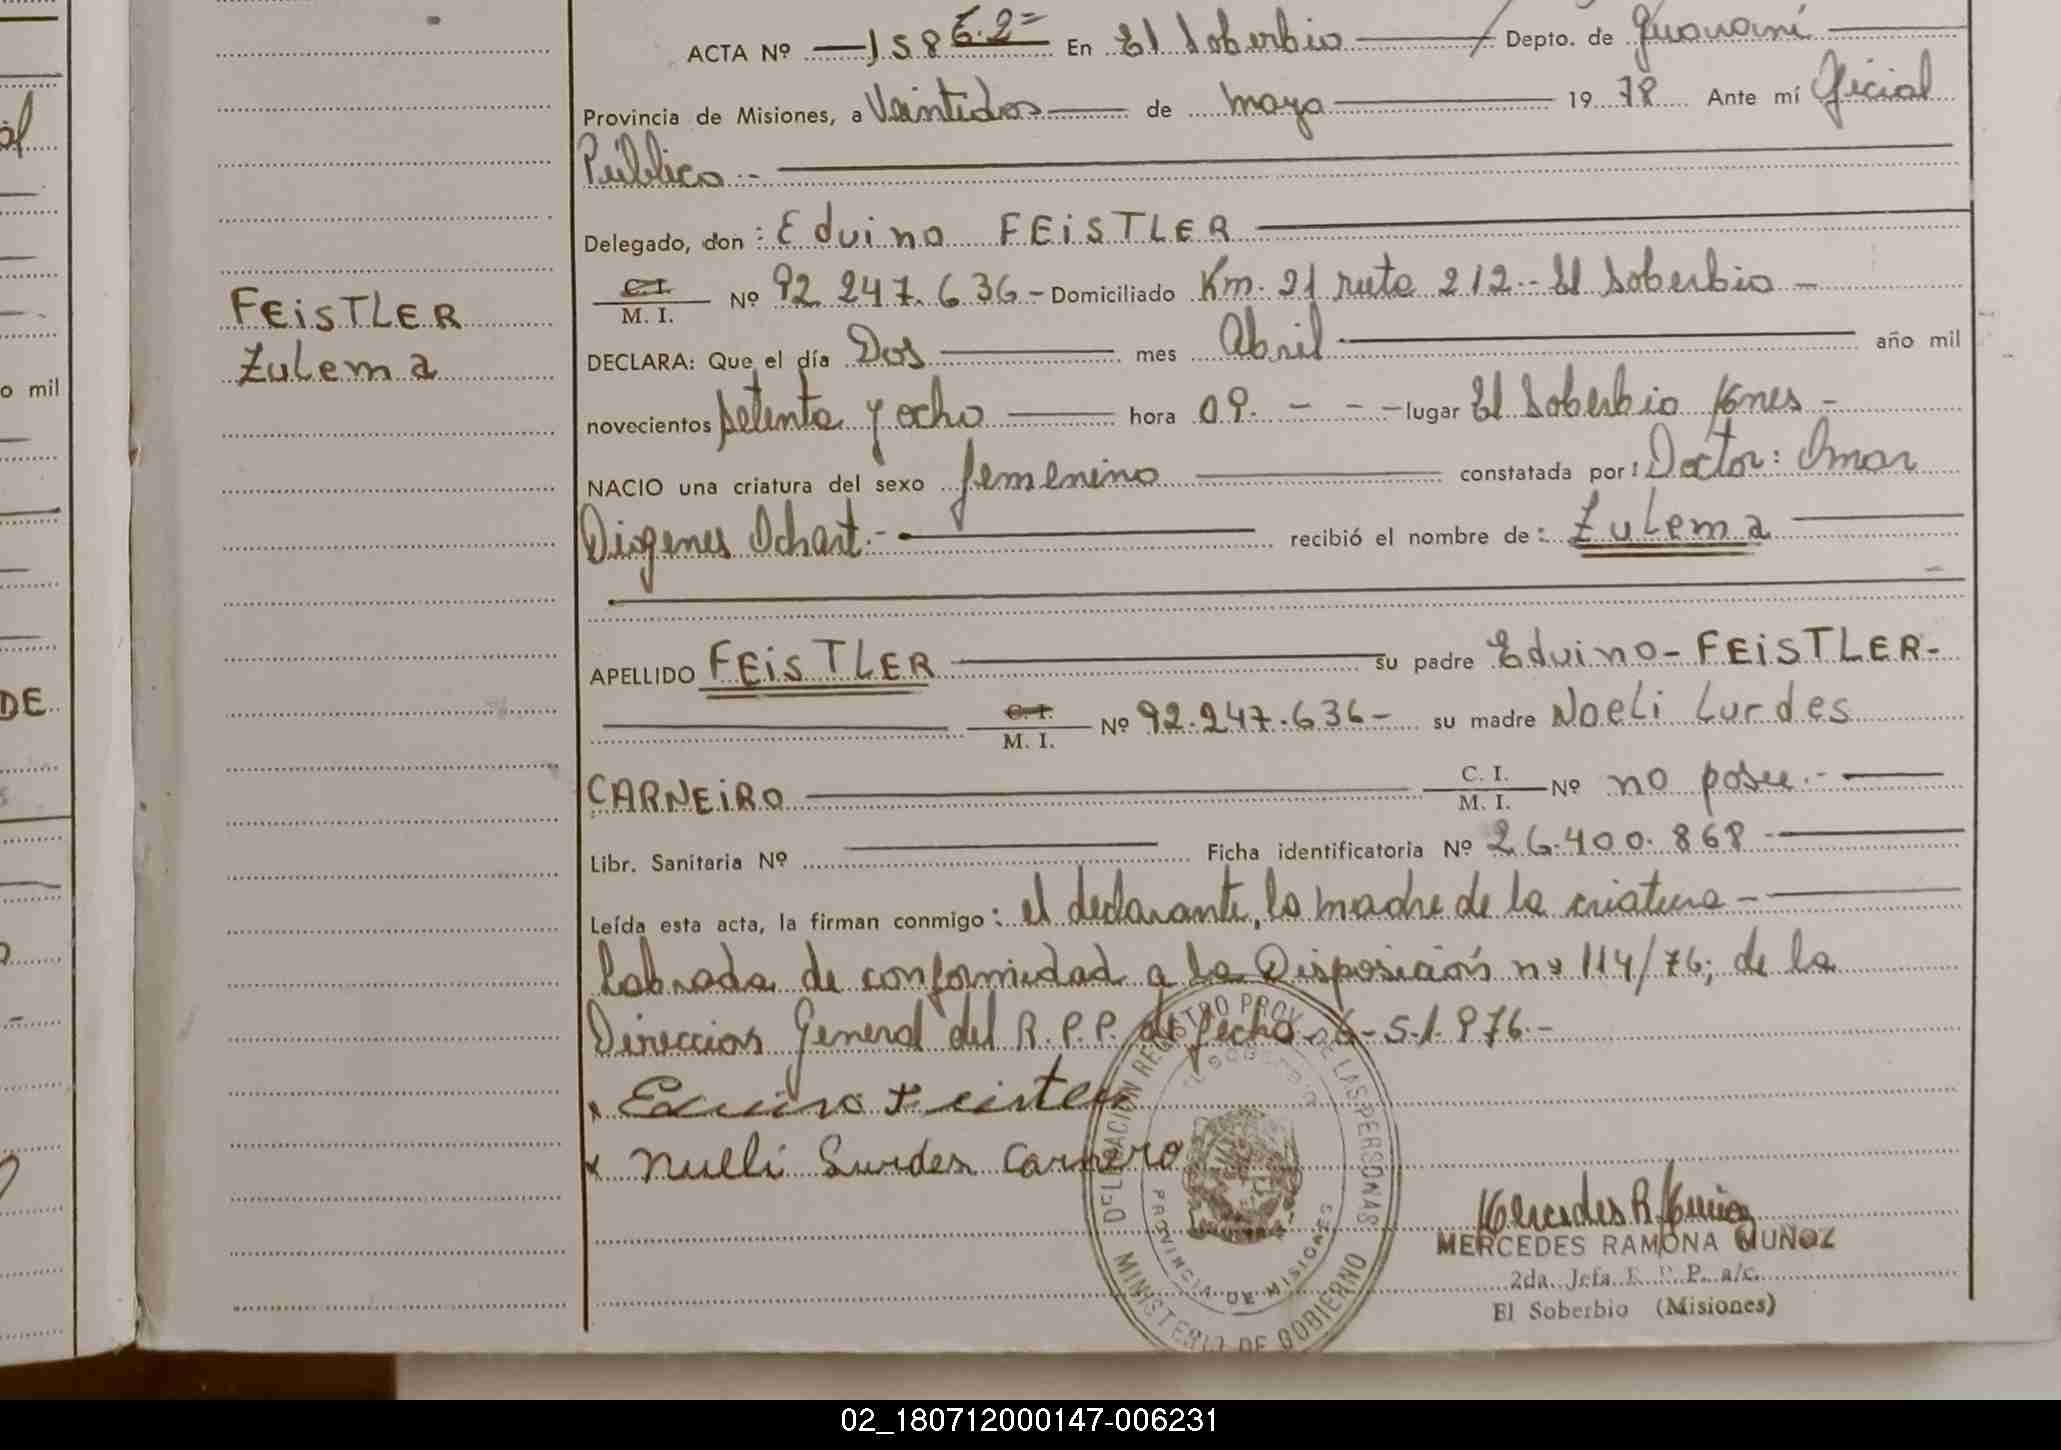 ACTA Nº 158 E. 2= En El Soberbio Depto. de Guaraní
Provincia de Misiones, a Veintidos de mayo 19 78 Ante mí Oficial
Público.-
Delegado, don: Eduino FEiSTLER
C. I. / M. I. Nº 92.247.636- Domiciliado Km. 21 ruta 212.- El Soberbio -
FEiSTLER
Zulema
DECLARA: Que el día Dos mes Abril año mil
novecientos setenta y ocho hora 09. - - - lugar El Soberbio Mnes -
NACIO una criatura del sexo femenino constatada por: Doctor: Omar
Diogenes Ochart.- recibió el nombre de: Zulema
APELLIDO FEiSTLER su padre Eduino-FEiSTLER-
C. I. / M. I. Nº 92.247.636- su madre Noeli Lurdes
CARNEiRO C. I. / M. I. Nº no posee.-
Libr. Sanitaria Nº Ficha identificatoria Nº 26.400.868-
Leída esta acta, la firman conmigo: el declarante, la madre de la criatura-
Labrada de conformidad a la Disposición nº 114/76; de la
Direccion General del R.P.P. de fecha 6-5-1.976.-
x Eduino Feistler
x Nueli Lurdes Carneiro
DELEGACION REGISTRO PROV. DE LAS PERSONAS
EL SOBERBIO
PROVINCIA DE MISIONES
MINISTERIO DE GOBIERNO
Mercedes R. Muñoz
MERCEDES RAMONA MUÑOZ
2da. Jefa R. P. P. a/c.
El Soberbio (Misiones)
o mil
DE
02_180712000147-006231